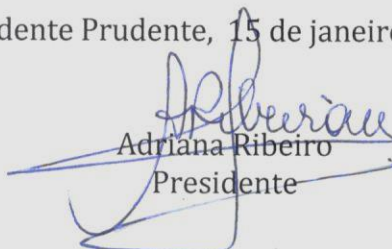 dente Prudente, 15 de janeiro
ARibeiro
Adriana Ribeiro
Presidente